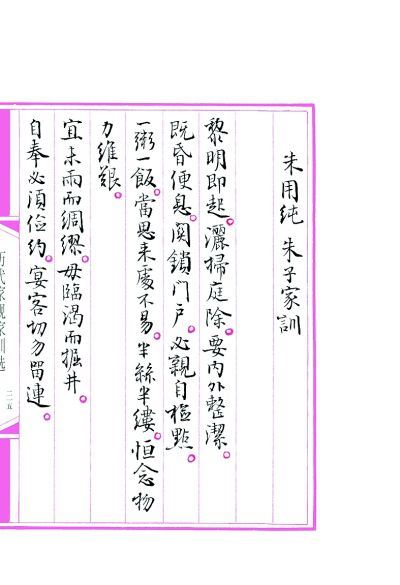 朱用纯 朱子家訓
黎明即起。灑掃庭除。要内外整潔。
既昏便息。関鎖门户。必親自檢點。
一粥一飯。當思来處不易。半絲半縷。恒念物
力維艱。
宜未雨而綢繆。毋臨渴而掘井。
自奉必須儉約。宴客切勿留連。
历代家规家训选
三五